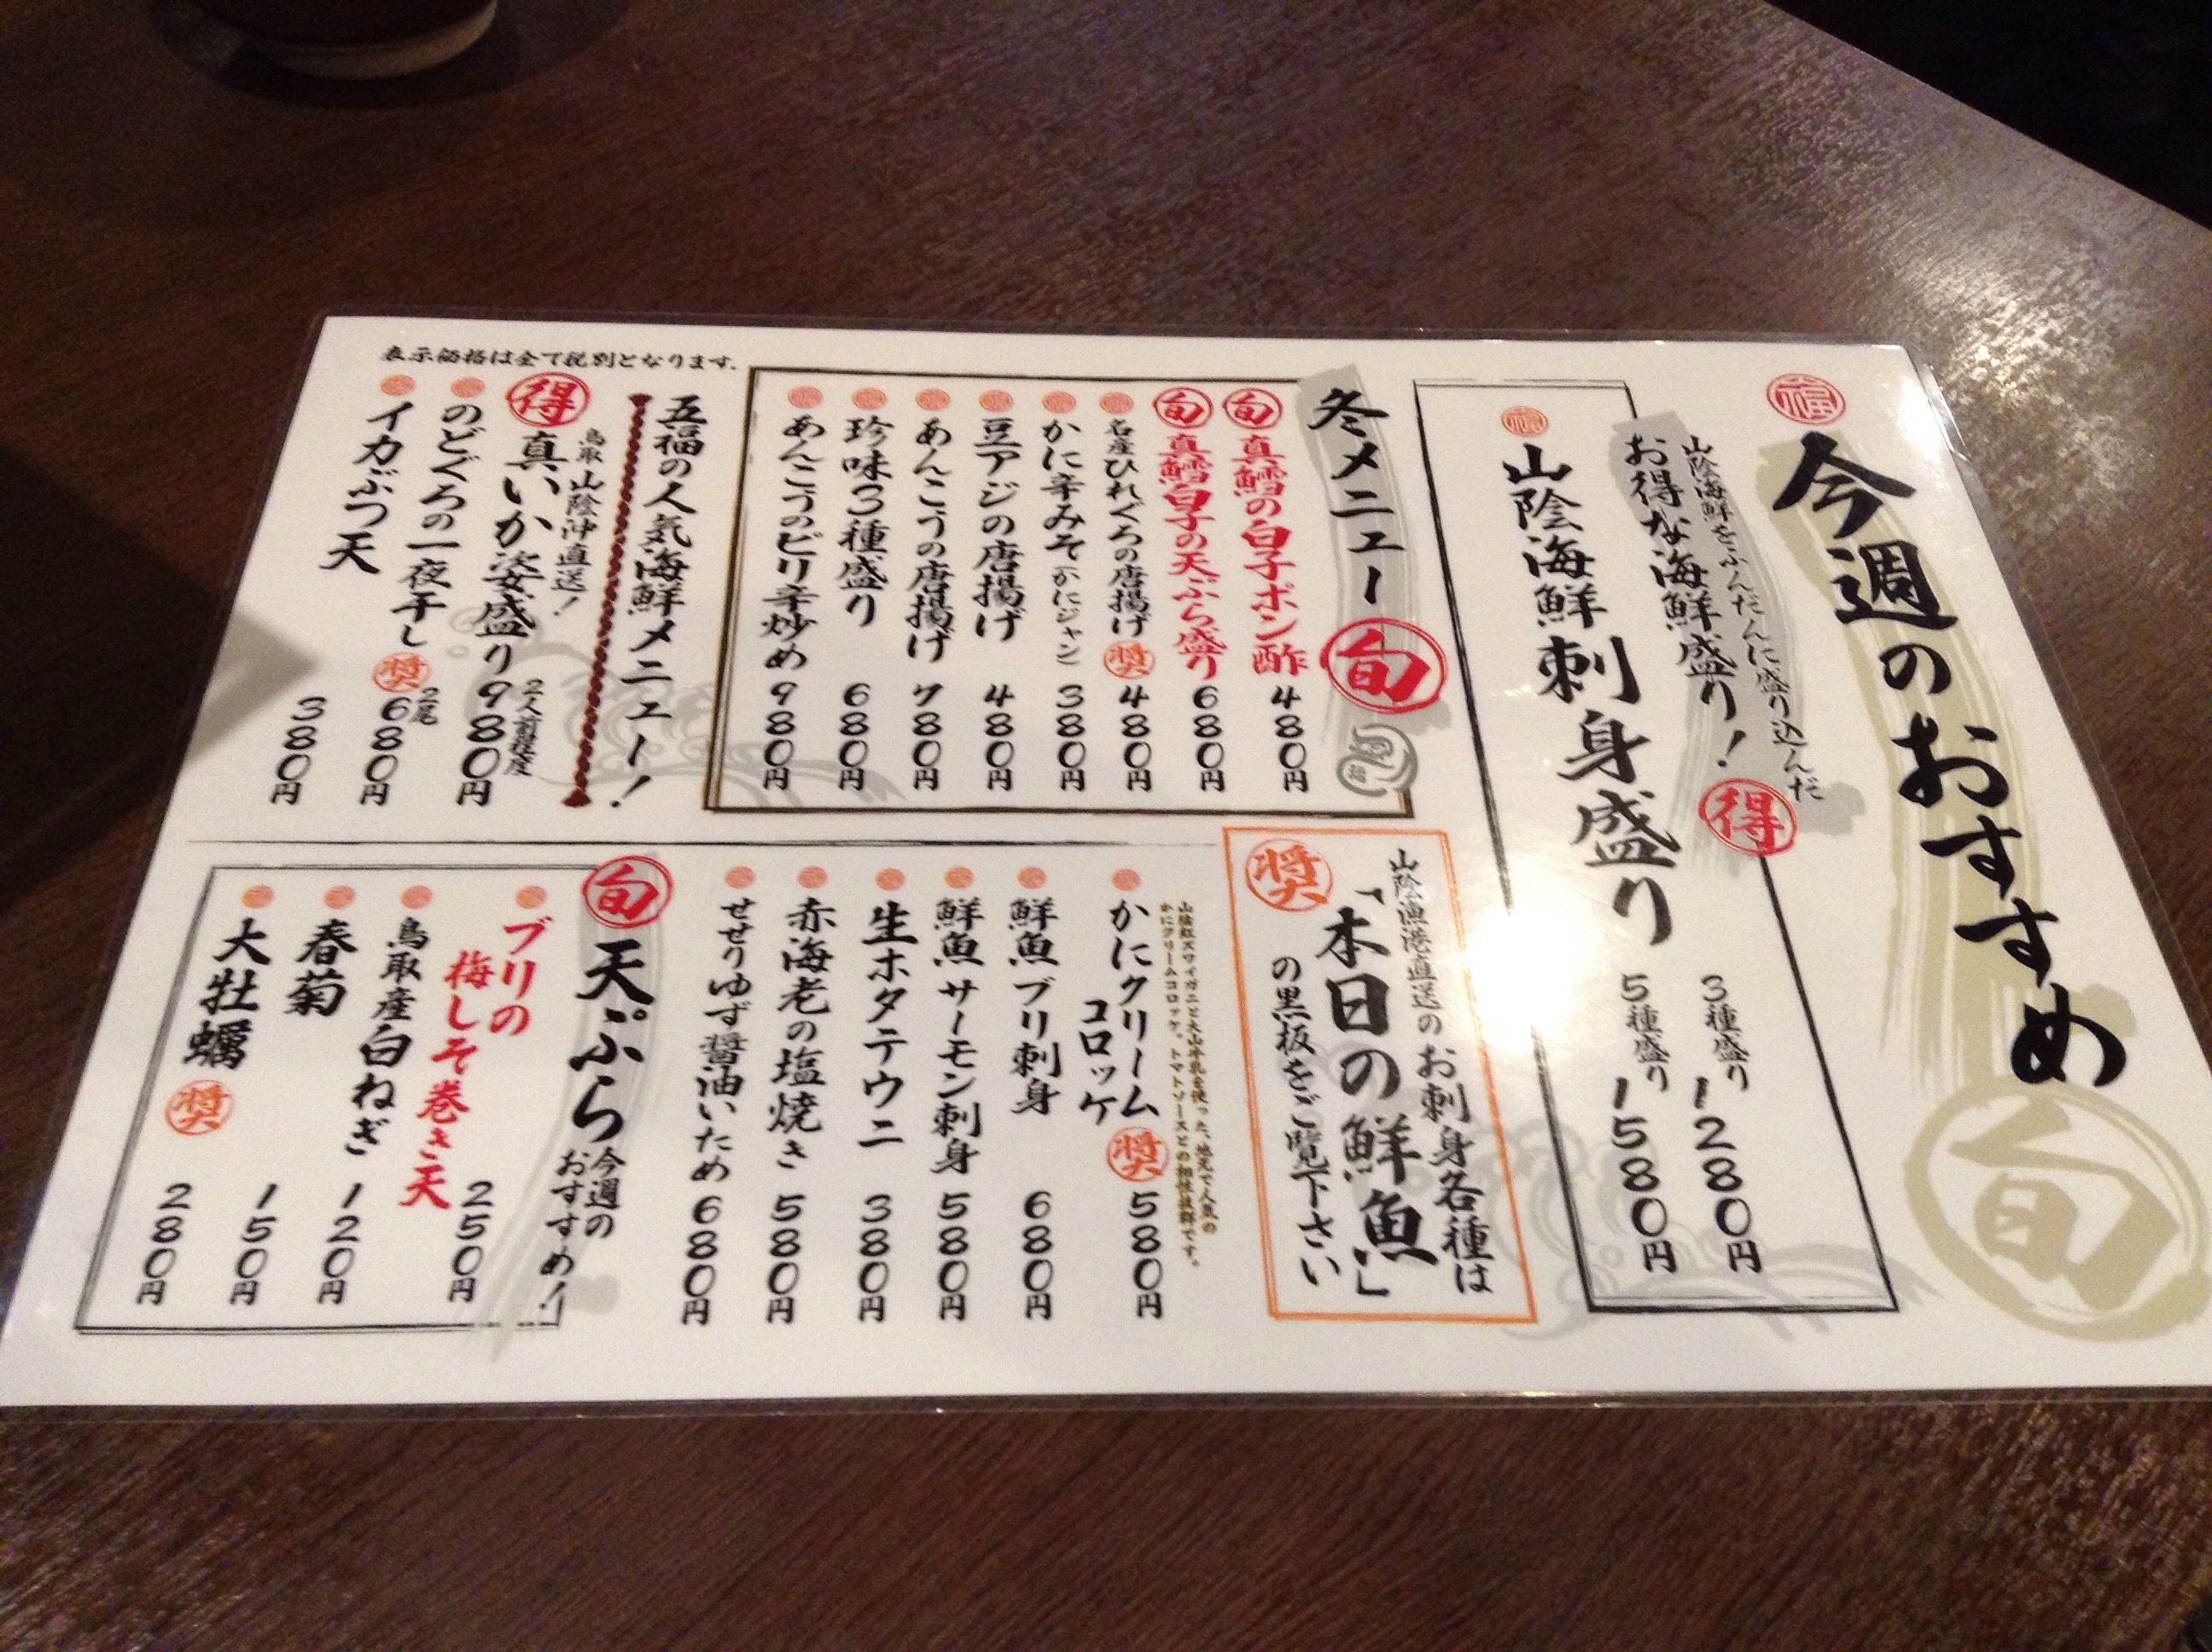 福
今週のおすすめ
旬
山陰海鮮をふんだんに盛り込んだ
お得な海鮮盛り!
得
福
山陰海鮮刺身盛り
3種盛り 1280円
5種盛り 1580円
冬メニュー 旬
旬 真鱈の白子ポン酢 480円
旬 真鱈白子の天ぷら盛り 680円
名産ひれぐろの唐揚げ 奨 480円
かに辛みそ(かにジャン) 380円
豆アジの唐揚げ 480円
あんこうの唐揚げ 780円
珍味3種盛り 680円
あんこうのピリ辛炒め 980円
五福の人気海鮮メニュー!
鳥取 山陰沖直送!
得 真いか姿盛り 2人前程度 980円
のどぐろの一夜干し 奨 2尾 680円
イカぶつ天 380円
表示価格は全て税別となります.
山陰漁港直送のお刺身各種は
奨 「本日の鮮魚」
の黒板をご覧下さい
山陰紅ズワイガニと大山牛乳を使った、地元で人気の
かにクリームコロッケ。トマトソースとの相性抜群です。
かにクリーム
コロッケ 奨 580円
鮮魚ブリ刺身 680円
鮮魚サーモン刺身 580円
生ホタテウニ 380円
赤海老の塩焼き 580円
せせりゆず醤油いため 680円
旬 天ぷら 今週の
おすすめ!
ブリの
梅しそ巻き天 250円
鳥取産白ねぎ 120円
春菊 150円
大牡蠣 奨 280円